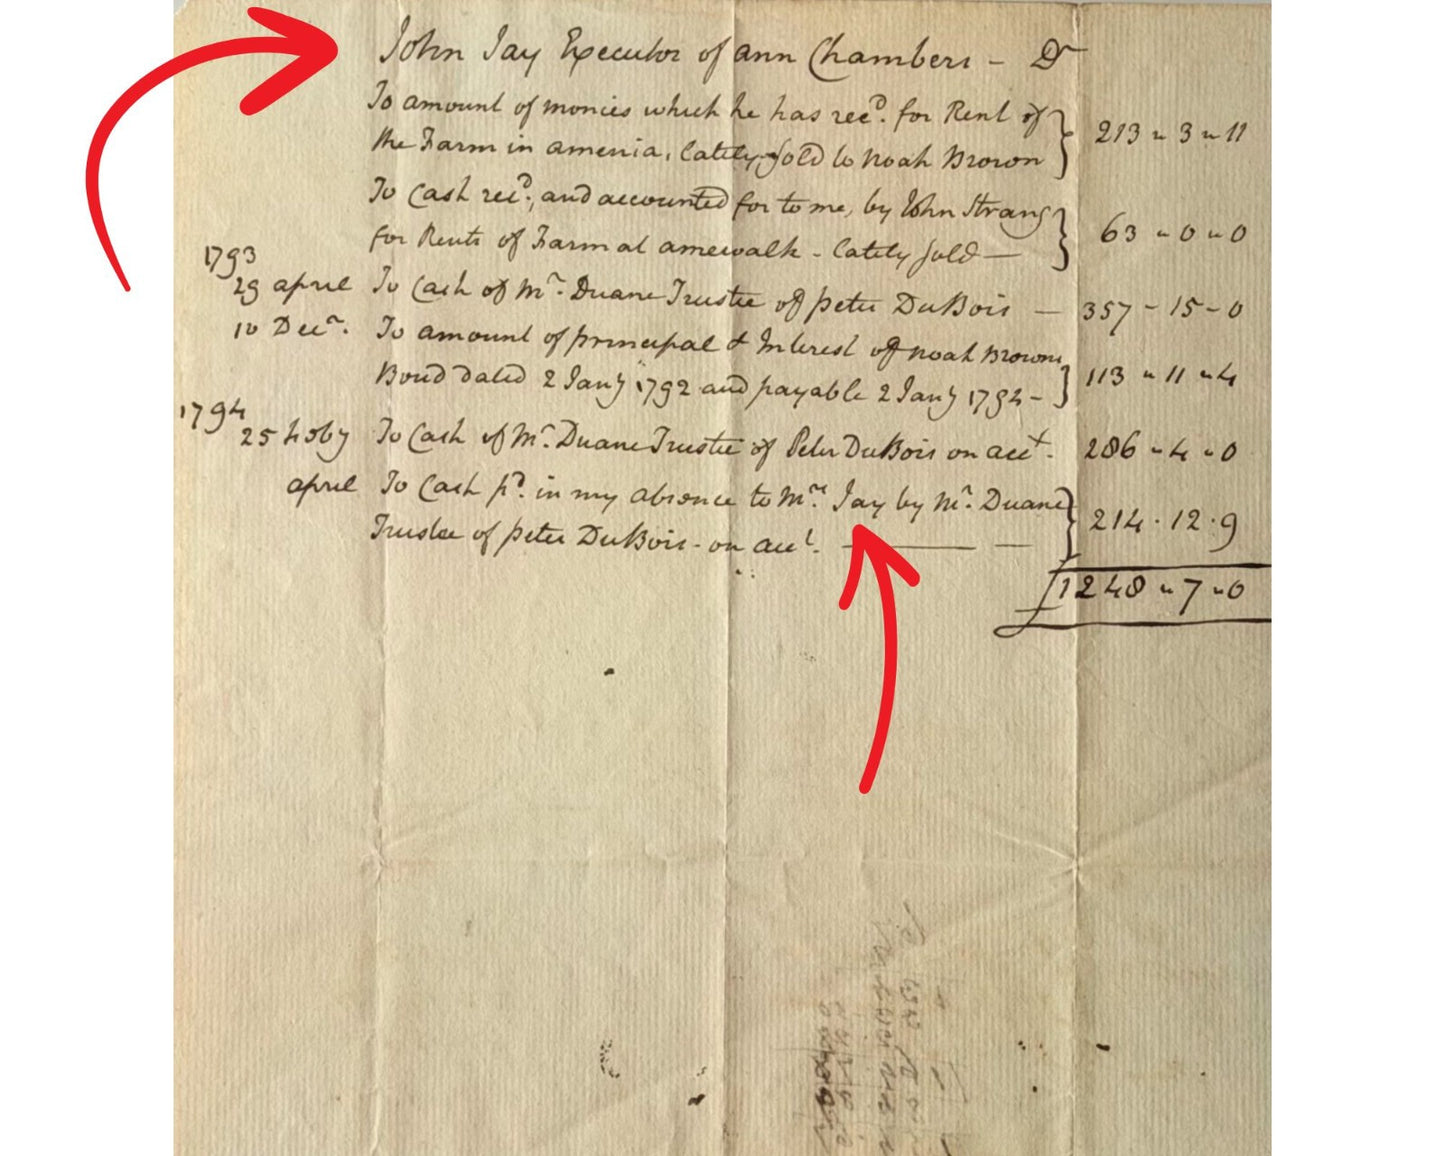 John Jay Executor of ann Chambers - Dr
To amount of monies which he has recd. for Rent of
the Farm in amenia, lately sold to Noah Brown 213 " 3 " 11
To Cash recd., and accounted for to me, by John Strang
for Rents of Farm at amewalk - lately sold — 63 " 0 " 0
1793
29 april To Cash of Mr. Duane Trustee of peter DuBois — 357 - 15 - 0
10 Decr. To amount of principal & Interest of Noah Browns
Bond dated 2 Jany 1792 and payable 2 Jany 1794 - 113 " 11 " 4
1794
25 To Cash of Mr. Duane Trustee of Peter DuBois on acct. 286 " 4 " 0
april To Cash pd. in my absence to Mrs. Jay by Mr. Duane
Trustee of peter DuBois - on acct. — — 214 . 12 . 9
1248 " 7 " 0